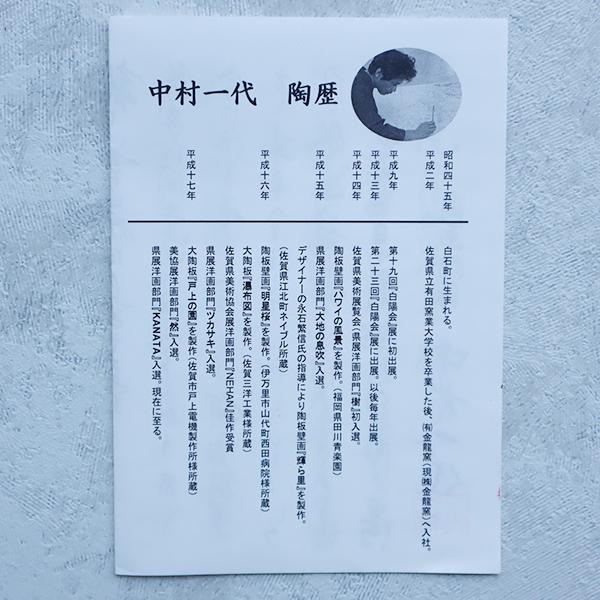 中村一代　陶歴
昭和四十五年　白石町に生まれる。
平成二年　佐賀県立有田窯業大学校を卒業した後、㈲金龍窯(現㈱金龍窯)へ入社。
平成九年　第十九回『白陽会』展に初出展。
平成十三年　第二十三回『白陽会』展に出展。以後毎年出展。
平成十四年　佐賀県美術展覧会(県展洋画部門『樹』初入選。
陶板壁画『ハワイの風景』を製作。(福岡県田川青楽園)
平成十五年　県展洋画部門『大地の息吹』入選。
デザイナーの永石繁信氏の指導により陶板壁画『輝ら里』を製作。
(佐賀県江北町ネイブル所蔵)
平成十六年　陶板壁画『明星桜』を製作。(伊万里市山代町西田病院様所蔵)
大陶板『瀑布図』を製作。(佐賀三洋工業様所蔵)
佐賀県美術協会展洋画部門『NEHAN』佳作受賞
県展洋画部門『ツカサキ』入選。
平成十七年　大陶板『戸上の園』を製作(佐賀市戸上電機製作所様所蔵)
美協展洋画部門『然』入選。
県展洋画部門『KANATA』入選。現在に至る。